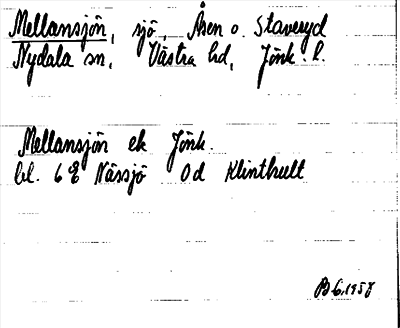 Mellansjön, sjö, Åsen o. Staveryd
Nydala sn, Västra hd, Jönk. l.
Mellansjön ek Jönk.
bl. 6 Nässjö 0d Klinthult
B6.1957